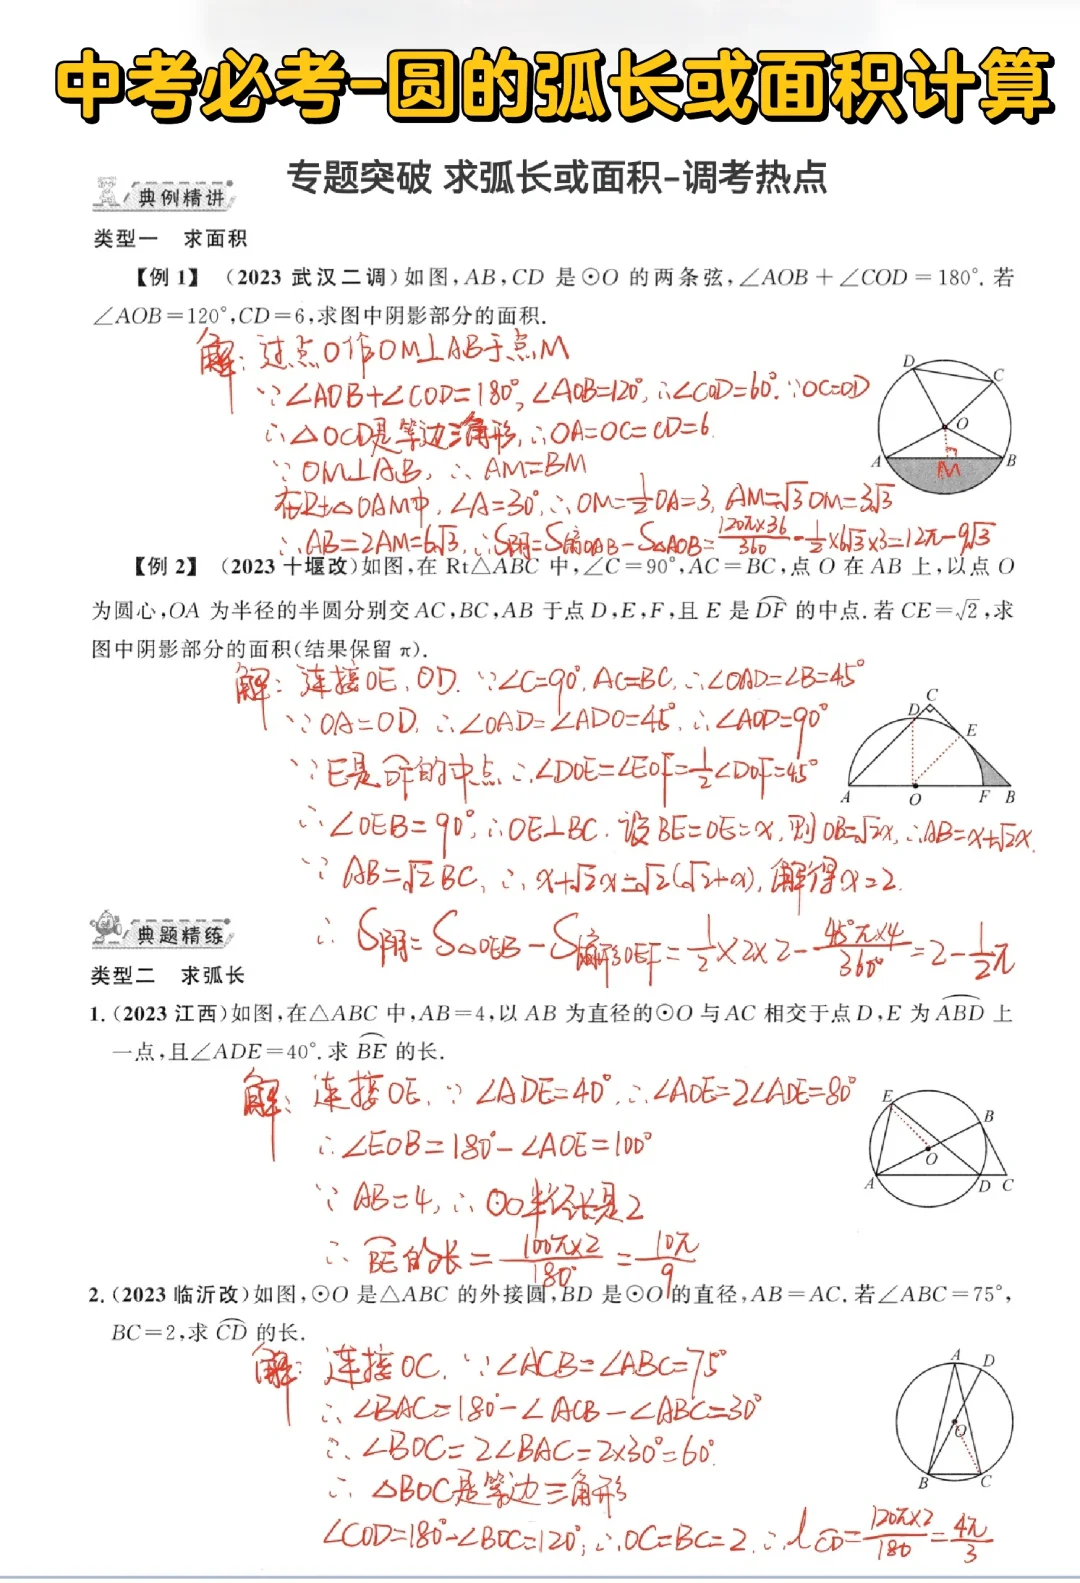 中考必考-圆的弧长或面积计算
专题突破 求弧长或面积-调考热点
典例精讲
类型一 求面积
【例1】（2023 武汉二调）如图，AB，CD 是⊙O 的两条弦，∠AOB＋∠COD＝180°．若
∠AOB＝120°，CD＝6，求图中阴影部分的面积．
解：过点O作OM⊥AB于点M
∵∠AOB+∠COD=180°，∠AOB=120°，∴∠COD=60°．∵OC=OD
∴△OCD是等边三角形，∴OA=OC=CD=6
∵OM⊥AB，∴AM=BM
在Rt△OAM中，∠A=30°，∴OM=1/2OA=3，AM=√3OM=3√3
∴AB=2AM=6√3，∴S阴=S扇OAB-S△AOB=120π×36/360-1/2×6√3×3=12π-9√3
D
C
O
A
M
B
【例2】（2023 十堰改）如图，在 Rt△ABC 中，∠C＝90°，AC＝BC，点 O 在 AB 上，以点 O
为圆心，OA 为半径的半圆分别交 AC，BC，AB 于点 D，E，F，且 E 是 DF 的中点．若 CE＝√2，求
图中阴影部分的面积（结果保留 π）．
解：连接OE、OD．∵∠C=90°，AC=BC，∴∠OAD=∠B=45°
∵OA=OD，∴∠OAD=∠ADO=45°，∴∠AOD=90°
∵E是DF的中点 ∴∠DOE=∠EOF=1/2∠DOF=45°
∴∠OEB=90°，∴OE⊥BC．设BE=OE=x，则OB=√2x，∴AB=x+√2x
∵AB=√2BC，∴x+√2x=√2(√2+x)，解得x=2．
∴S阴=S△OEB-S扇形OEF=1/2×2×2-45°π×4/360°=2-1/2π
C
D
E
A
O
F
B
典题精练
类型二 求弧长
1．（2023 江西）如图，在△ABC 中，AB＝4，以 AB 为直径的⊙O 与 AC 相交于点 D，E 为 ABD 上
一点，且∠ADE＝40°．求 BE 的长．
解：连接OE，∵∠ADE=40°，∴∠AOE=2∠ADE=80°
∴∠EOB=180°-∠AOE=100°
∵AB=4，∴⊙O半径长是2
∴BE的长=100π×2/180°=10π/9
E
B
O
A
D
C
2．（2023 临沂改）如图，⊙O 是△ABC 的外接圆，BD 是⊙O 的直径，AB＝AC．若∠ABC＝75°，
BC＝2，求 CD 的长．
解：连接OC．∵∠ACB=∠ABC=75°
∴∠BAC=180°-∠ACB-∠ABC=30°
∴∠BOC=2∠BAC=2×30°=60°
∴△BOC是等边三角形
∠COD=180°-∠BOC=120°，∴OC=BC=2．∴lCD=120π×2/180=4π/3
A
D
O
B
C